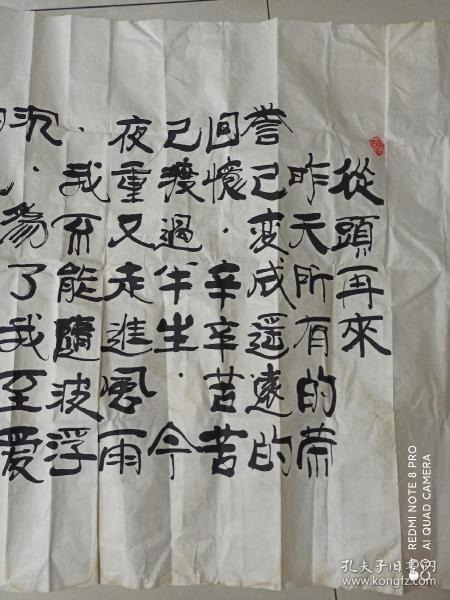 從頭再來
昨天所有的荣
誉已变成遥遠的
回憶·辛辛苦苦
已渡過半生·今
夜重又走進風雨
·我不能隨波浮
沉·為了我至爱
REDMI NOTE 8 PRO
AI QUAD CAMERA
孔夫子旧书网
www.kongfz.com